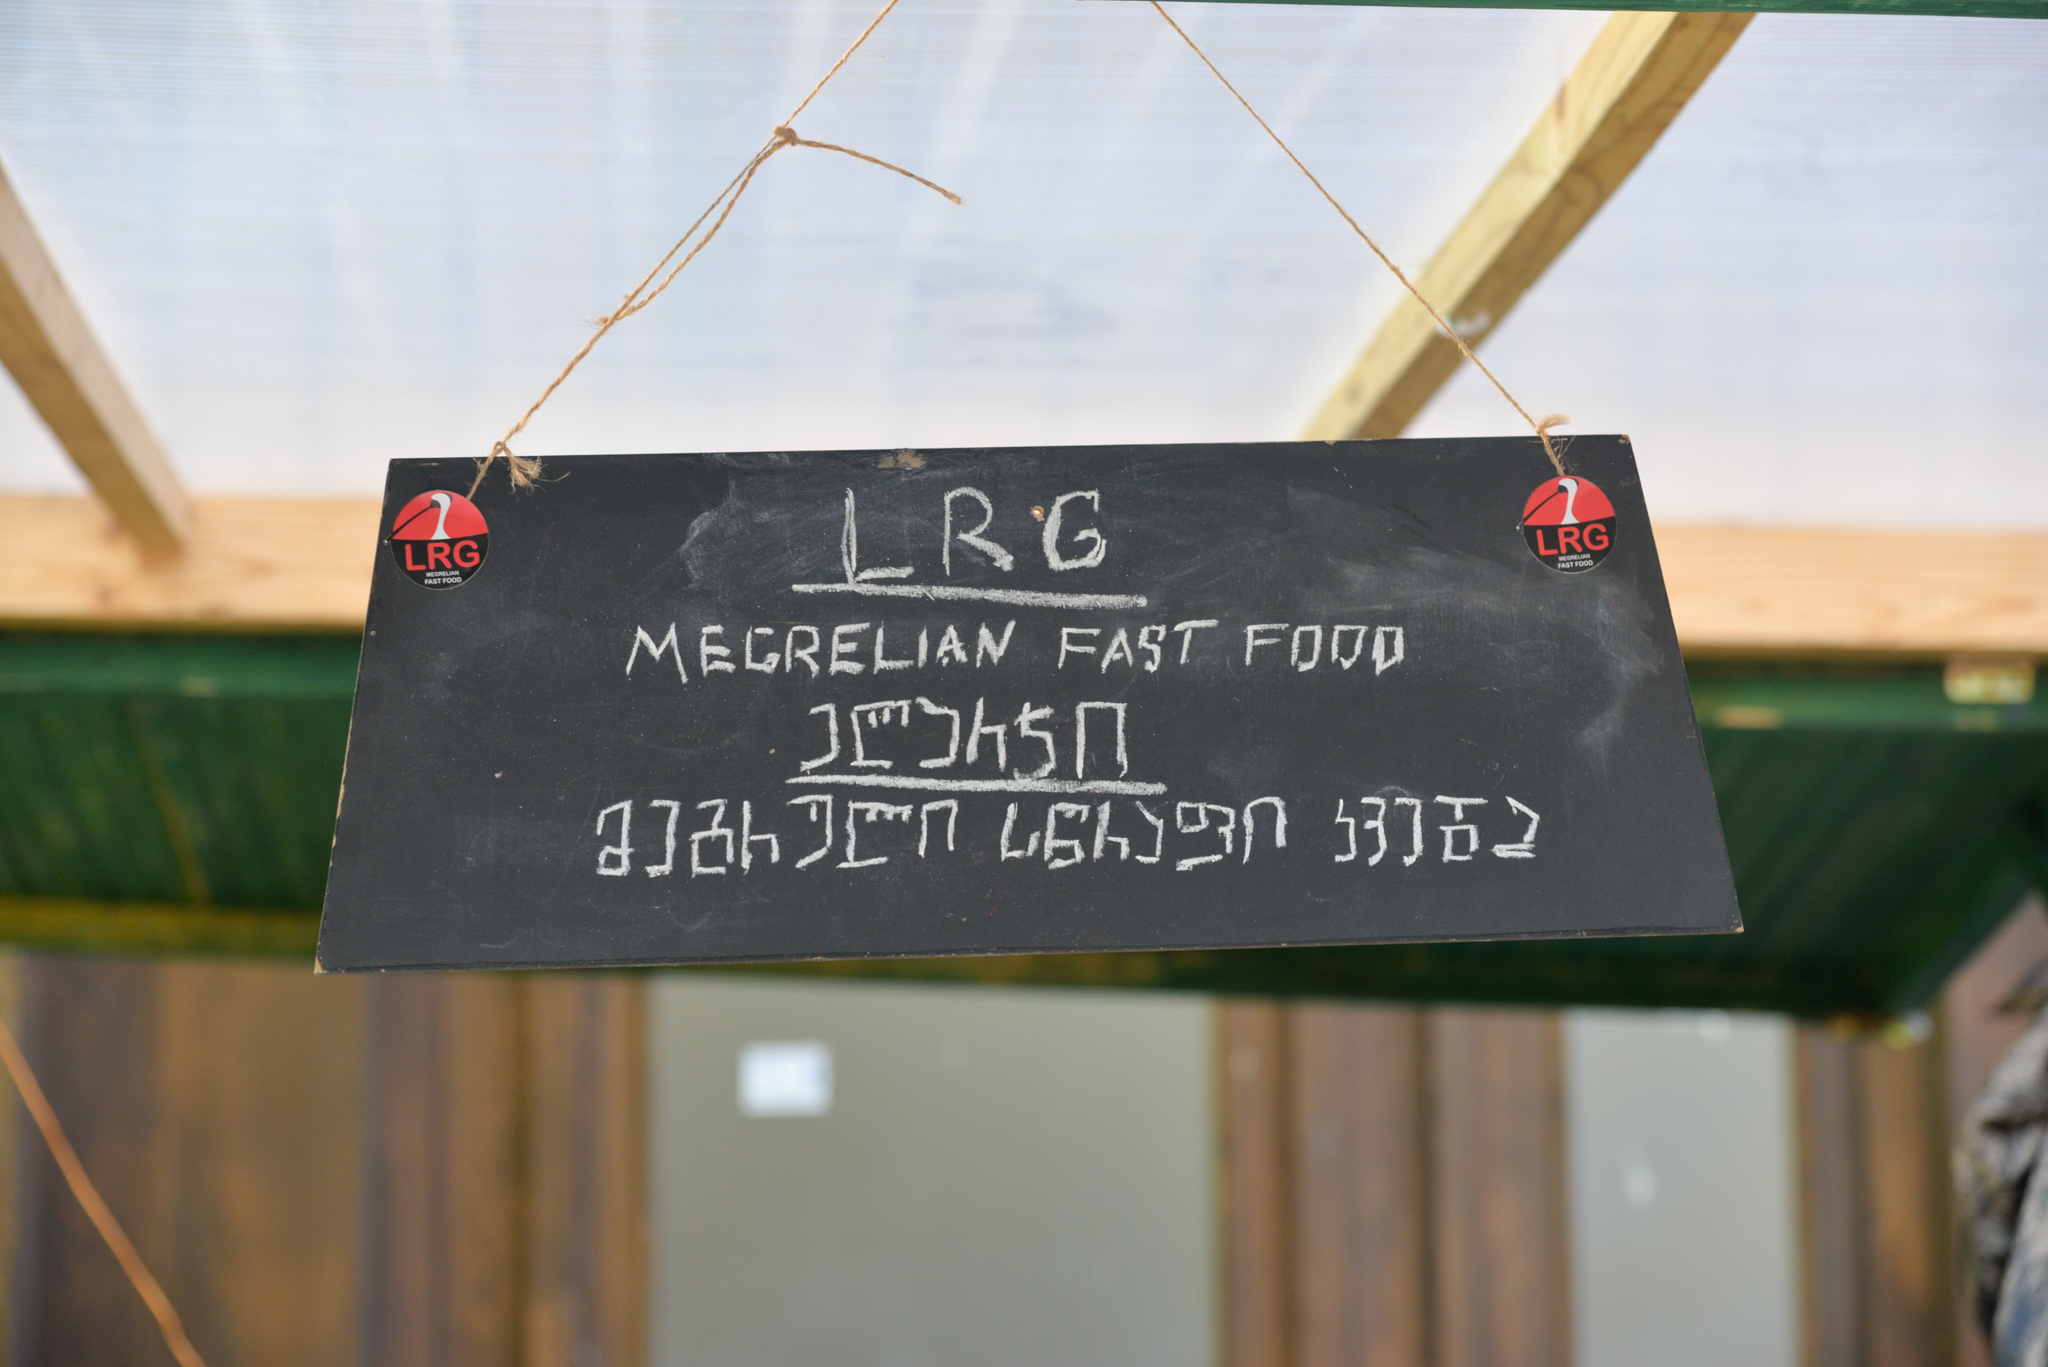 LRG
MEGRELIAN
FAST FOOD
LRG
MEGRELIAN FAST FOOD
ელერჯი
მეგრული სწრაფი კვება
LRG
MEGRELIAN
FAST FOOD